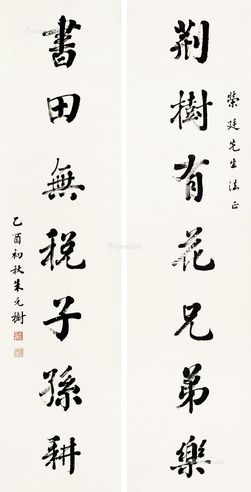 榮廷先生法正
荆樹有花兄弟樂
書田無税子孫耕
乙酉初秋朱元樹